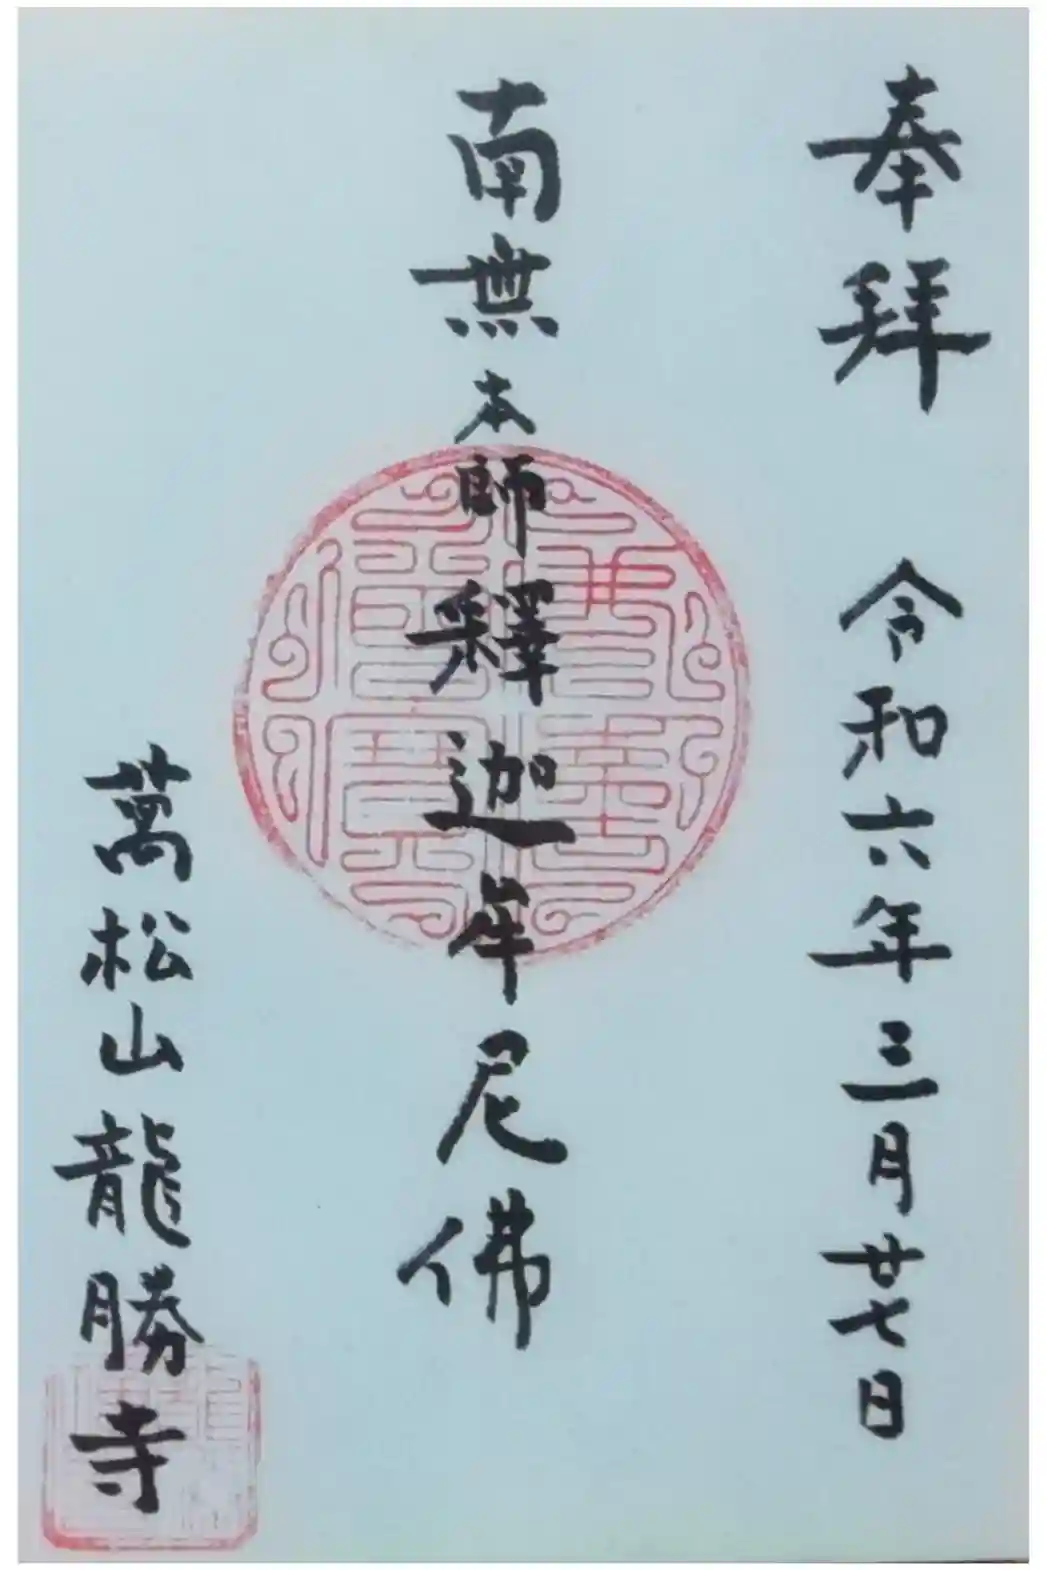 奉拜 令和六年三月廿七日
南無本師釋迦牟尼佛
萬松山龍勝寺